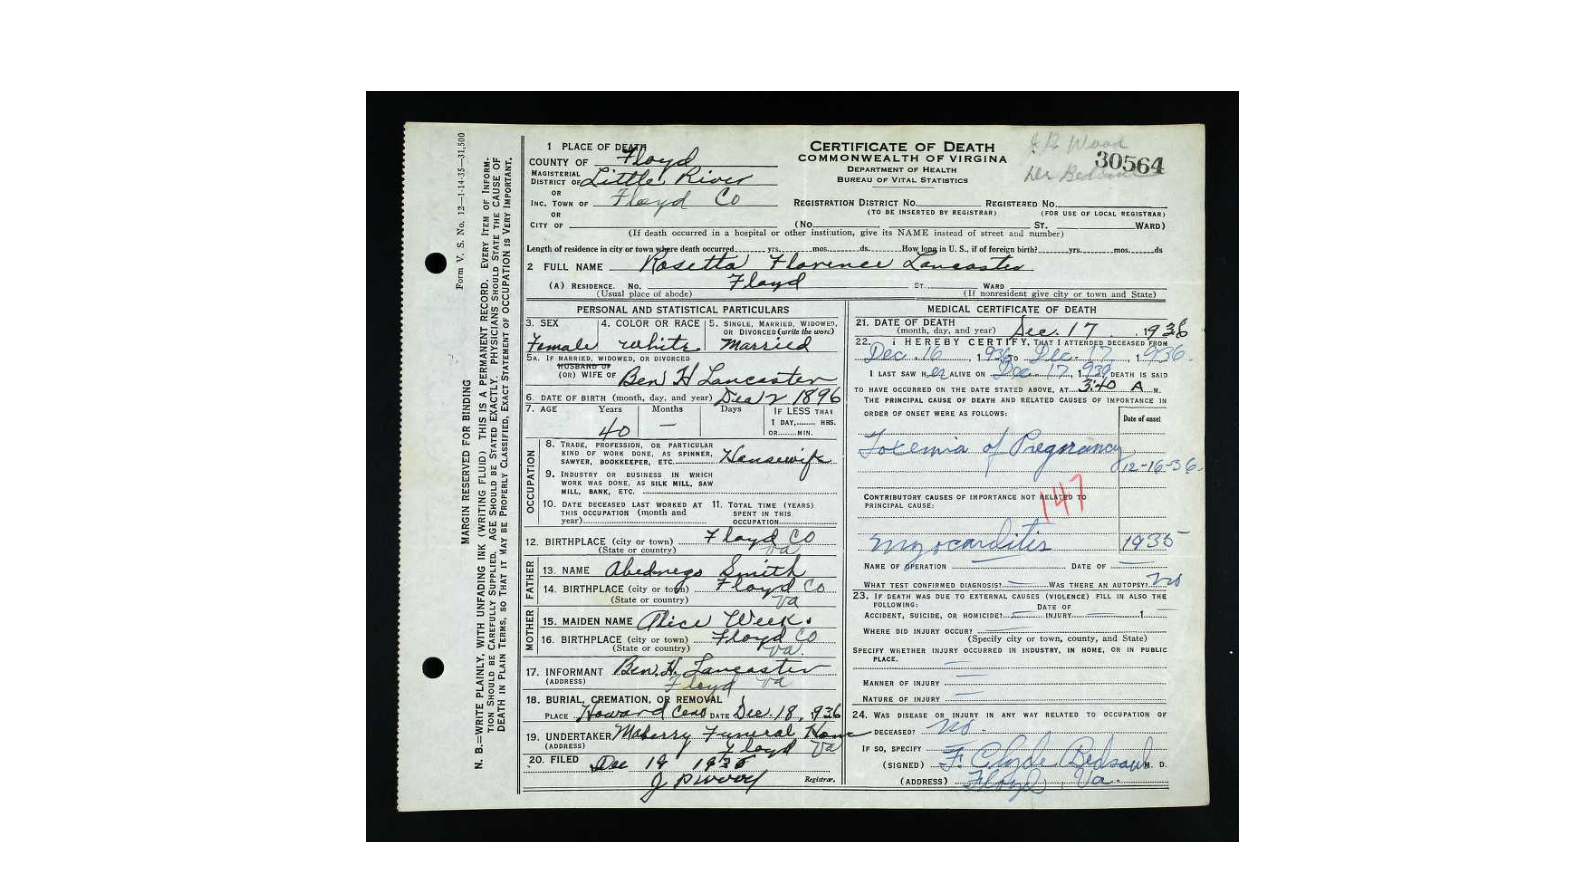 Form V. S. No. 12—1-14-35—31,500
MARGIN RESERVED FOR BINDING
N. B.—WRITE PLAINLY, WITH UNFADING INK (WRITING FLUID) THIS IS A PERMANENT RECORD. EVERY ITEM OF INFORM-
TION SHOULD BE CAREFULLY SUPPLIED. AGE SHOULD BE STATED EXACTLY. PHYSICIANS SHOULD STATE THE CAUSE OF
DEATH IN PLAIN TERMS, SO THAT IT MAY BE PROPERLY CLASSIFIED, EXACT STATEMENT OF OCCUPATION IS VERY IMPORTANT.
1 PLACE OF DEATH
COUNTY OF Floyd
MAGISTERIAL
DISTRICT OF Little River
OR
INC. TOWN OF Floyd Co
OR
CITY OF
CERTIFICATE OF DEATH
COMMONWEALTH OF VIRGINIA
DEPARTMENT OF HEALTH
BUREAU OF VITAL STATISTICS
J P Wood
30564
Dr
REGISTRATION DISTRICT NO. REGISTERED NO.
(TO BE INSERTED BY REGISTRAR) (FOR USE OF LOCAL REGISTRAR)
(No. ST. WARD)
(If death occurred in a hospital or other institution, give its NAME instead of street and number)
Length of residence in city or town where death occurred yrs. mos. ds. How long in U. S., if of foreign birth? yrs. mos. ds
2 FULL NAME Rosetta Florence Lancaster
(A) RESIDENCE. NO. Floyd ST. WARD
(Usual place of abode) (If nonresident give city or town and State)
PERSONAL AND STATISTICAL PARTICULARS
3. SEX 4. COLOR OR RACE 5. SINGLE, MARRIED, WIDOWED, OR DIVORCED (write the word)
Female white Married
5A. IF MARRIED, WIDOWED, OR DIVORCED
HUSBAND OF
(OR) WIFE OF Ben H Lancaster
6. DATE OF BIRTH (month, day, and year) Dec 2 1896
7. AGE Years Months Days IF LESS THAN
1 DAY, HRS.
OR MIN.
40 —
OCCUPATION
8. TRADE, PROFESSION, OR PARTICULAR
KIND OF WORK DONE, AS SPINNER,
SAWYER, BOOKKEEPER, ETC. Housewife
9. INDUSTRY OR BUSINESS IN WHICH
WORK WAS DONE, AS SILK MILL, SAW
MILL, BANK, ETC.
10. DATE DECEASED LAST WORKED AT 11. TOTAL TIME (YEARS)
THIS OCCUPATION (month and SPENT IN THIS
year) OCCUPATION
12. BIRTHPLACE (city or town) Floyd Co
(State or country) Va
FATHER
13. NAME Abednego Smith
14. BIRTHPLACE (city or town) Floyd Co
(State or country) Va
MOTHER
15. MAIDEN NAME Alice Weeks
16. BIRTHPLACE (city or town) Floyd Co
(State or country) Va.
17. INFORMANT Ben. H. Lancaster
(ADDRESS) Floyd Va
18. BURIAL, CREMATION, OR REMOVAL
PLACE Howard Cem DATE Dec. 18, 1936
19. UNDERTAKER Maberry Funeral Home
(ADDRESS) Floyd Va
20. FILED Dec 19 1936
J P Wood Registrar.
MEDICAL CERTIFICATE OF DEATH
21. DATE OF DEATH
(month, day, and year) Dec. 17, 1936
22. I HEREBY CERTIFY, THAT I ATTENDED DECEASED FROM
Dec. 16, 1936 TO Dec. 17, 1936.
I LAST SAW HER ALIVE ON Dec 17, 1936 DEATH IS SAID
TO HAVE OCCURRED ON THE DATE STATED ABOVE, AT 3:40 A M.
THE PRINCIPAL CAUSE OF DEATH AND RELATED CAUSES OF IMPORTANCE IN
ORDER OF ONSET WERE AS FOLLOWS:
Date of onset
Toxemia of Pregnancy
12-16-36.
CONTRIBUTORY CAUSES OF IMPORTANCE NOT RELATED TO
PRINCIPAL CAUSE:
147
Myocarditis 1935
NAME OF OPERATION — DATE OF —
WHAT TEST CONFIRMED DIAGNOSIS? — WAS THERE AN AUTOPSY? no
23. IF DEATH WAS DUE TO EXTERNAL CAUSES (VIOLENCE) FILL IN ALSO THE
FOLLOWING:
ACCIDENT, SUICIDE, OR HOMICIDE? — DATE OF INJURY — 1 —
WHERE DID INJURY OCCUR? —
(Specify city or town, county, and State)
SPECIFY WHETHER INJURY OCCURRED IN INDUSTRY, IN HOME, OR IN PUBLIC
PLACE. —
MANNER OF INJURY —
NATURE OF INJURY —
24. WAS DISEASE OR INJURY IN ANY WAY RELATED TO OCCUPATION OF
DECEASED? no -
IF SO, SPECIFY
(SIGNED) F. Clyde Bedsaul M. D.
(ADDRESS) Floyd, Va.